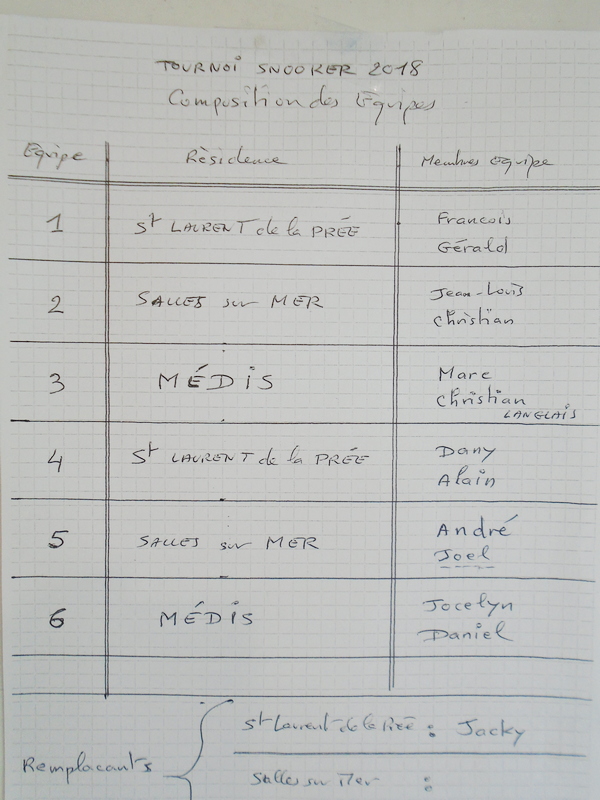 TOURNOI SNOOKER 2018
Composition des Equipes
Equipe Résidence Membres equipe
1 St LAURENT de la PRÉE Francois
Gérald
2 SALLES sur MER Jean-Louis
Christian
3 MÉDIS Marc
Christian
LANGLAIS
4 St LAURENT de la PRÉE Dany
Alain
5 SALLES sur MER André
Joel
6 MÉDIS Jocelyn
Daniel
St Laurent de la Prée : Jacky
Remplacants
Salles sur Mer :